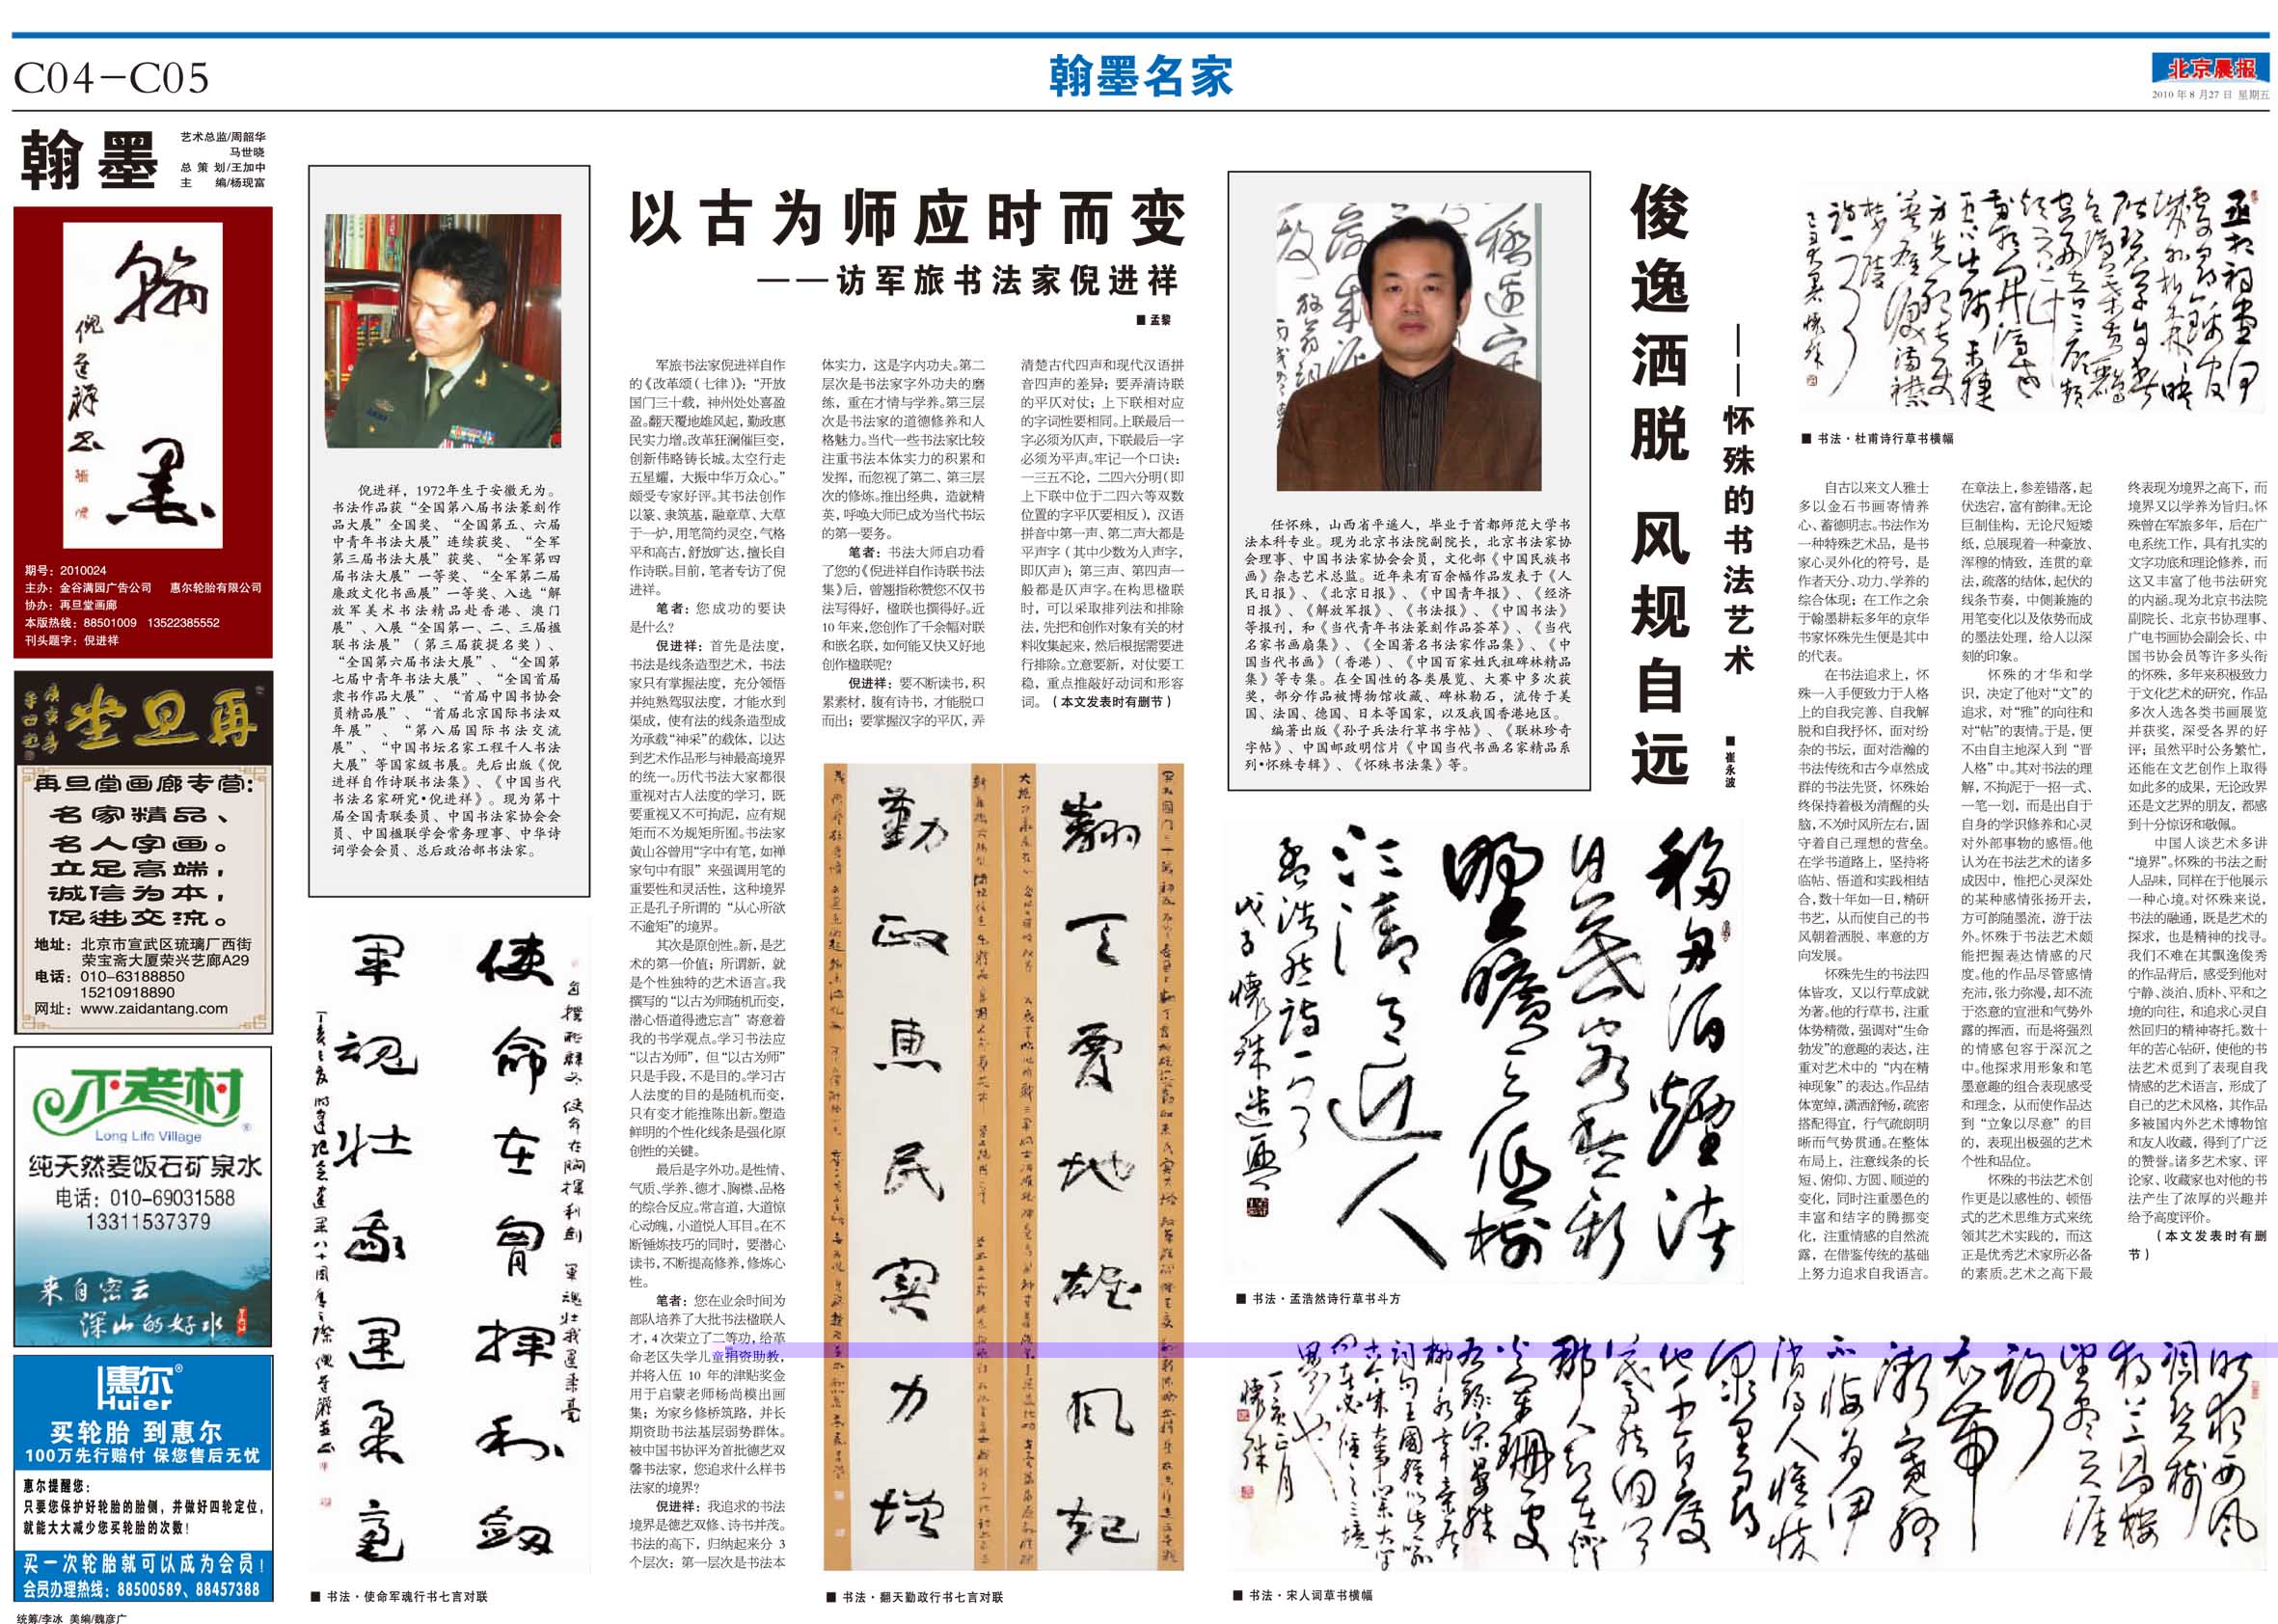 C04-C05
翰墨名家
北京晨报
2010年8月27日 星期五
翰墨
艺术总监/周韶华
马世晓
总策划/王加中
主 编/杨现富
翰墨
倪进祥书
期号：2010024
主办：金谷满园广告公司 惠尔轮胎有限公司
协办：再旦堂画廊
本版热线：88501009 13522385552
刊头题字：倪进祥
再旦堂
再旦堂画廊专营：
名家精品、
名人字画。
立足高端，
诚信为本，
促进交流。
地址：北京市宣武区琉璃厂西街
荣宝斋大厦荣兴艺廊A29
电话：010-63188850
15210918890
网址：www.zaidantang.com
不老村
®
Long Life Village
纯天然麦饭石矿泉水
电话：010-69031588
13311537379
来自密云
深山的好水
惠尔®
Huier
买轮胎 到惠尔
100万先行赔付 保您售后无忧
惠尔提醒您：
只要您保护好轮胎的胎侧，并做好四轮定位，
就能大大减少您买轮胎的次数！
买一次轮胎就可以成为会员！
会员办理热线：88500589、88457388
统筹/李冰 美编/魏彦广
倪进祥，1972年生于安徽无为。
书法作品获“全国第八届书法篆刻作
品大展”全国奖、“全国第五、六届
中青年书法大展”连续获奖、“全军
第三届书法大展”获奖、“全军第四
届书法大展”一等奖、“全军第二届
廉政文化书画展”一等奖、入选“解
放军美术书法精品赴香港、澳门
展”、入展“全国第一、二、三届楹
联书法展”（第三届获提名奖）、
“全国第六届书法大展”、“全国第
七届中青年书法大展”、“全国首届
隶书作品大展”、“首届中国书协会
员精品展”、“首届北京国际书法双
年展”、“第八届国际书法交流
展”、“中国书坛名家工程千人书法
大展”等国家级书展。先后出版《倪
进祥自作诗联书法集》、《中国当代
书法名家研究•倪进祥》。现为第十
届全国青联委员、中国书法家协会会
员、中国楹联学会常务理事、中华诗
词学会会员、总后政治部书法家。
使命在胸挥利剑
军魂壮我运柔毫
■ 书法·使命军魂行书七言对联
以古为师应时而变
——访军旅书法家倪进祥
■ 孟黎
军旅书法家倪进祥自作
的《改革颂（七律）》：“开放
国门三十载，神州处处喜盈
盈。翻天覆地雄风起，勤政惠
民实力增。改革狂澜催巨变，
创新伟略铸长城。太空行走
五星耀，大振中华万众心。”
颇受专家好评。其书法创作
以篆、隶筑基，融章草、大草
于一炉，用笔简约灵空，气格
平和高古，舒放旷达，擅长自
作诗联。目前，笔者专访了倪
进祥。
笔者：您成功的要诀
是什么？
倪进祥：首先是法度，
书法是线条造型艺术，书法
家只有掌握法度，充分领悟
并纯熟驾驭法度，才能水到
渠成，使有法的线条造型成
为承载“神采”的载体，以达
到艺术作品形与神最高境界
的统一。历代书法大家都很
重视对古人法度的学习，既
要重视又不可拘泥，应有规
矩而不为规矩所囿。书法家
黄山谷曾用“字中有笔，如禅
家句中有眼”来强调用笔的
重要性和灵活性，这种境界
正是孔子所谓的“从心所欲
不逾矩”的境界。
其次是原创性。新，是艺
术的第一价值；所谓新，就
是个性独特的艺术语言。我
撰写的“以古为师随机而变，
潜心悟道得遗忘言”寄意着
我的书学观点。学习书法应
“以古为师”，但“以古为师”
只是手段，不是目的。学习古
人法度的目的是随机而变，
只有变才能推陈出新。塑造
鲜明的个性化线条是强化原
创性的关键。
最后是字外功。是性情、
气质、学养、德才、胸襟、品格
的综合反应。常言道，大道惊
心动魄，小道悦人耳目。在不
断锤炼技巧的同时，要潜心
读书，不断提高修养，修炼心
性。
笔者：您在业余时间为
部队培养了大批书法楹联人
才，4次荣立了二等功，给革
命老区失学儿童捐资助教，
并将入伍 10 年的津贴奖金
用于启蒙老师杨尚模出画
集；为家乡修桥筑路，并长
期资助书法基层弱势群体。
被中国书协评为首批德艺双
馨书法家，您追求什么样书
法家的境界？
倪进祥：我追求的书法
境界是德艺双修、诗书并茂。
书法的高下，归纳起来分 3
个层次：第一层次是书法本
体实力，这是字内功夫。第二
层次是书法家字外功夫的磨
练，重在才情与学养。第三层
次是书法家的道德修养和人
格魅力。当代一些书法家比较
注重书法本体实力的积累和
发挥，而忽视了第二、第三层
次的修炼。推出经典，造就精
英，呼唤大师已成为当代书坛
的第一要务。
笔者：书法大师启功看
了您的《倪进祥自作诗联书法
集》后，曾翘指称赞您不仅书
法写得好，楹联也撰得好。近
10年来，您创作了千余幅对联
和嵌名联，如何能又快又好地
创作楹联呢？
倪进祥：要不断读书，积
累素材，腹有诗书，才能脱口
而出；要掌握汉字的平仄，弄
清楚古代四声和现代汉语拼
音四声的差异；要弄清诗联
的平仄对仗；上下联相对应
的字词性要相同。上联最后一
字必须为仄声，下联最后一字
必须为平声。牢记一个口诀：
一三五不论，二四六分明（即
上下联中位于二四六等双数
位置的字平仄要相反），汉语
拼音中第一声、第二声大都是
平声字（其中少数为入声字，
即仄声）；第三声、第四声一
般都是仄声字。在构思楹联
时，可以采取排列法和排除
法，先把和创作对象有关的材
料收集起来，然后根据需要进
行排除。立意要新，对仗要工
稳，重点推敲好动词和形容
词。（本文发表时有删节）
翻天覆地雄风起
勤政惠民实力增
■ 书法·翻天勤政行书七言对联
任怀殊，山西省平遥人，毕业于首都师范大学书
法本科专业。现为北京书法院副院长，北京书法家协
会理事、中国书法家协会会员，文化部《中国民族书
画》杂志艺术总监。近年来有百余幅作品发表于《人
民日报》、《北京日报》、《中国青年报》、《经济
日报》、《解放军报》、《书法报》、《中国书法》
等报刊，和《当代青年书法篆刻作品荟萃》、《当代
名家书画扇集》、《全国著名书法家作品集》、《中
国当代书画》（香港）、《中国百家姓氏祖碑林精品
集》等专集。在全国性的各类展览、大赛中多次获
奖，部分作品被博物馆收藏、碑林勒石，流传于美
国、法国、德国、日本等国家，以及我国香港地区。
编著出版《孙子兵法行草书字帖》、《联林珍奇
字帖》、中国邮政明信片《中国当代书画名家精品系
列•怀殊专辑》、《怀殊书法集》等。
俊逸洒脱 风规自远
——怀殊的书法艺术
■ 崔永波
■ 书法·杜甫诗行草书横幅
自古以来文人雅士
多以金石书画寄情养
心、蓄德明志。书法作为
一种特殊艺术品，是书
家心灵外化的符号，是
作者天分、功力、学养的
综合体现；在工作之余
于翰墨耕耘多年的京华
书家怀殊先生便是其中
的代表。
在书法追求上，怀
殊一入手便致力于人格
上的自我完善、自我解
脱和自我抒怀，面对纷
杂的书坛，面对浩瀚的
书法传统和古今卓然成
群的书法先贤，怀殊始
终保持着极为清醒的头
脑，不为时风所左右，固
守着自己理想的营垒。
在学书道路上，坚持将
临帖、悟道和实践相结
合，数十年如一日，精研
书艺，从而使自己的书
风朝着洒脱、率意的方
向发展。
怀殊先生的书法四
体皆攻，又以行草成就
为著。他的行草书，注重
体势精微，强调对“生命
勃发”的意趣的表达，注
重对艺术中的“内在精
神现象”的表达。作品结
体宽绰，潇洒舒畅，疏密
搭配得宜，行气疏朗明
晰而气势贯通。在整体
布局上，注意线条的长
短、俯仰、方圆、顺逆的
变化，同时注重墨色的
丰富和结字的腾挪变
化，注重情感的自然流
露，在借鉴传统的基础
上努力追求自我语言。
在章法上，参差错落，起
伏迭宕，富有韵律。无论
巨制佳构，无论尺短矮
纸，总展现着一种豪放、
浑穆的情致，连贯的章
法，疏落的结体，起伏的
线条节奏，中侧兼施的
用笔变化以及依势而成
的墨法处理，给人以深
刻的印象。
怀殊的才华和学
识，决定了他对“文”的
追求，对“雅”的向往和
对“帖”的衷情。于是，便
不由自主地深入到“晋
人格”中。其对书法的理
解，不拘泥于一招一式、
一笔一划，而是出自于
自身的学识修养和心灵
对外部事物的感悟。他
认为在书法艺术的诸多
成因中，惟把心灵深处
的某种感情张扬开去，
方可韵随墨流，游于法
外。怀殊于书法艺术颇
能把握表达情感的尺
度。他的作品尽管感情
充沛，张力弥漫，却不流
于恣意的宣泄和气势外
露的挥洒，而是将强烈
的情感包容于深沉之
中。他探求用形象和笔
墨意趣的组合表现感受
和理念，从而使作品达
到“立象以尽意”的目
的，表现出极强的艺术
个性和品位。
怀殊的书法艺术创
作更是以感性的、顿悟
式的艺术思维方式来统
领其艺术实践的，而这
正是优秀艺术家所必备
的素质。艺术之高下最
终表现为境界之高下，而
境界又以学养为旨归。怀
殊曾在军旅多年，后在广
电系统工作，具有扎实的
文字功底和理论修养，而
这又丰富了他书法研究
的内涵。现为北京书法院
副院长、北京书协理事、
广电书画协会副会长、中
国书协会员等许多头衔
的怀殊，多年来积极致力
于文化艺术的研究，作品
多次入选各类书画展览
并获奖，深受各界的好
评；虽然平时公务繁忙，
还能在文艺创作上取得
如此多的成果，无论政界
还是文艺界的朋友，都感
到十分惊讶和敬佩。
中国人谈艺术多讲
“境界”。怀殊的书法之耐
人品味，同样在于他展示
一种心境。对怀殊来说，
书法的融通，既是艺术的
探求，也是精神的找寻。
我们不难在其飘逸俊秀
的作品背后，感受到他对
宁静、淡泊、质朴、平和之
境的向往，和追求心灵自
然回归的精神寄托。数十
年的苦心钻研，使他的书
法艺术觅到了表现自我
情感的艺术语言，形成了
自己的艺术风格，其作品
多被国内外艺术博物馆
和友人收藏，得到了广泛
的赞誉。诸多艺术家、评
论家、收藏家也对他的书
法产生了浓厚的兴趣并
给予高度评价。
（本文发表时有删
节）
移舟泊烟渚
日暮客愁新
野旷天低树
江清月近人
孟浩然诗一首
戊子怀殊遣兴
■ 书法·孟浩然诗行草书斗方
■ 书法·宋人词草书横幅